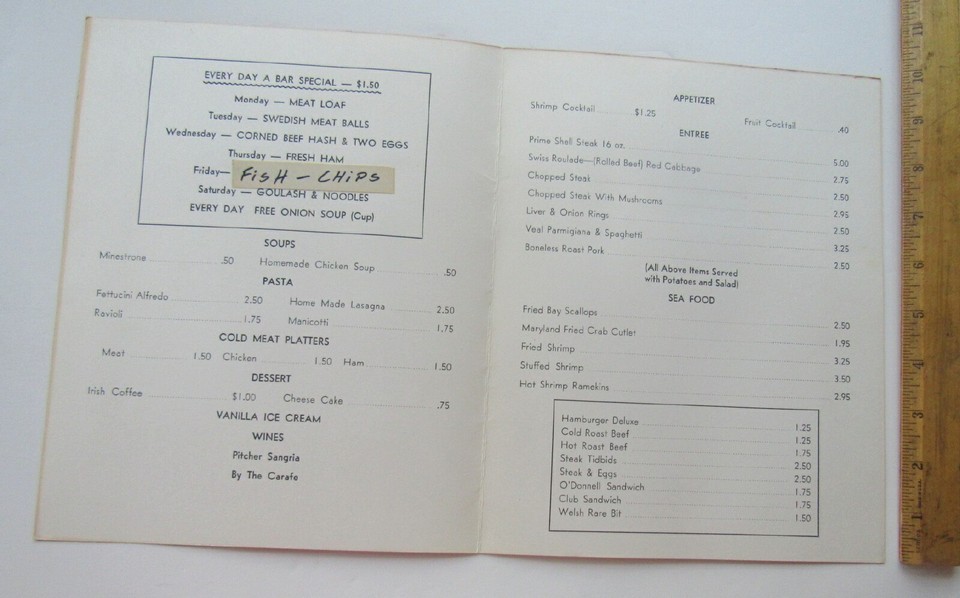 EVERY DAY A BAR SPECIAL — $1.50
Monday — MEAT LOAF
Tuesday — SWEDISH MEAT BALLS
Wednesday — CORNED BEEF HASH & TWO EGGS
Thursday — FRESH HAM
Friday— FISH - CHIPS
Saturday — GOULASH & NOODLES
EVERY DAY FREE ONION SOUP (Cup)
SOUPS
Minestrone .50 Homemade Chicken Soup .50
PASTA
Fettucini Alfredo 2.50 Home Made Lasagna 2.50
Ravioli 1.75 Manicotti 1.75
COLD MEAT PLATTERS
Meat 1.50 Chicken 1.50 Ham 1.50
DESSERT
Irish Coffee $1.00 Cheese Cake .75
VANILLA ICE CREAM
WINES
Pitcher Sangria
By The Carafe
APPETIZER
Shrimp Cocktail $1.25 Fruit Cocktail .40
ENTREE
Prime Shell Steak 16 oz. 5.00
Swiss Roulade—(Rolled Beef) Red Cabbage 2.75
Chopped Steak 2.50
Chopped Steak With Mushrooms 2.95
Liver & Onion Rings 2.50
Veal Parmigiana & Spaghetti 3.25
Boneless Roast Pork 2.50
(All Above Items Served
with Potatoes and Salad)
SEA FOOD
Fried Bay Scallops 2.50
Maryland Fried Crab Cutlet 1.95
Fried Shrimp 3.25
Stuffed Shrimp 3.50
Hot Shrimp Ramekins 2.95
Hamburger Deluxe 1.25
Cold Roast Beef 1.25
Hot Roast Beef 1.75
Steak Tidbids 2.50
Steak & Eggs 2.50
O'Donnell Sandwich 1.75
Club Sandwich 1.75
Welsh Rare Bit 1.50
11
10
9
8
7
6
5
4
3
2
1